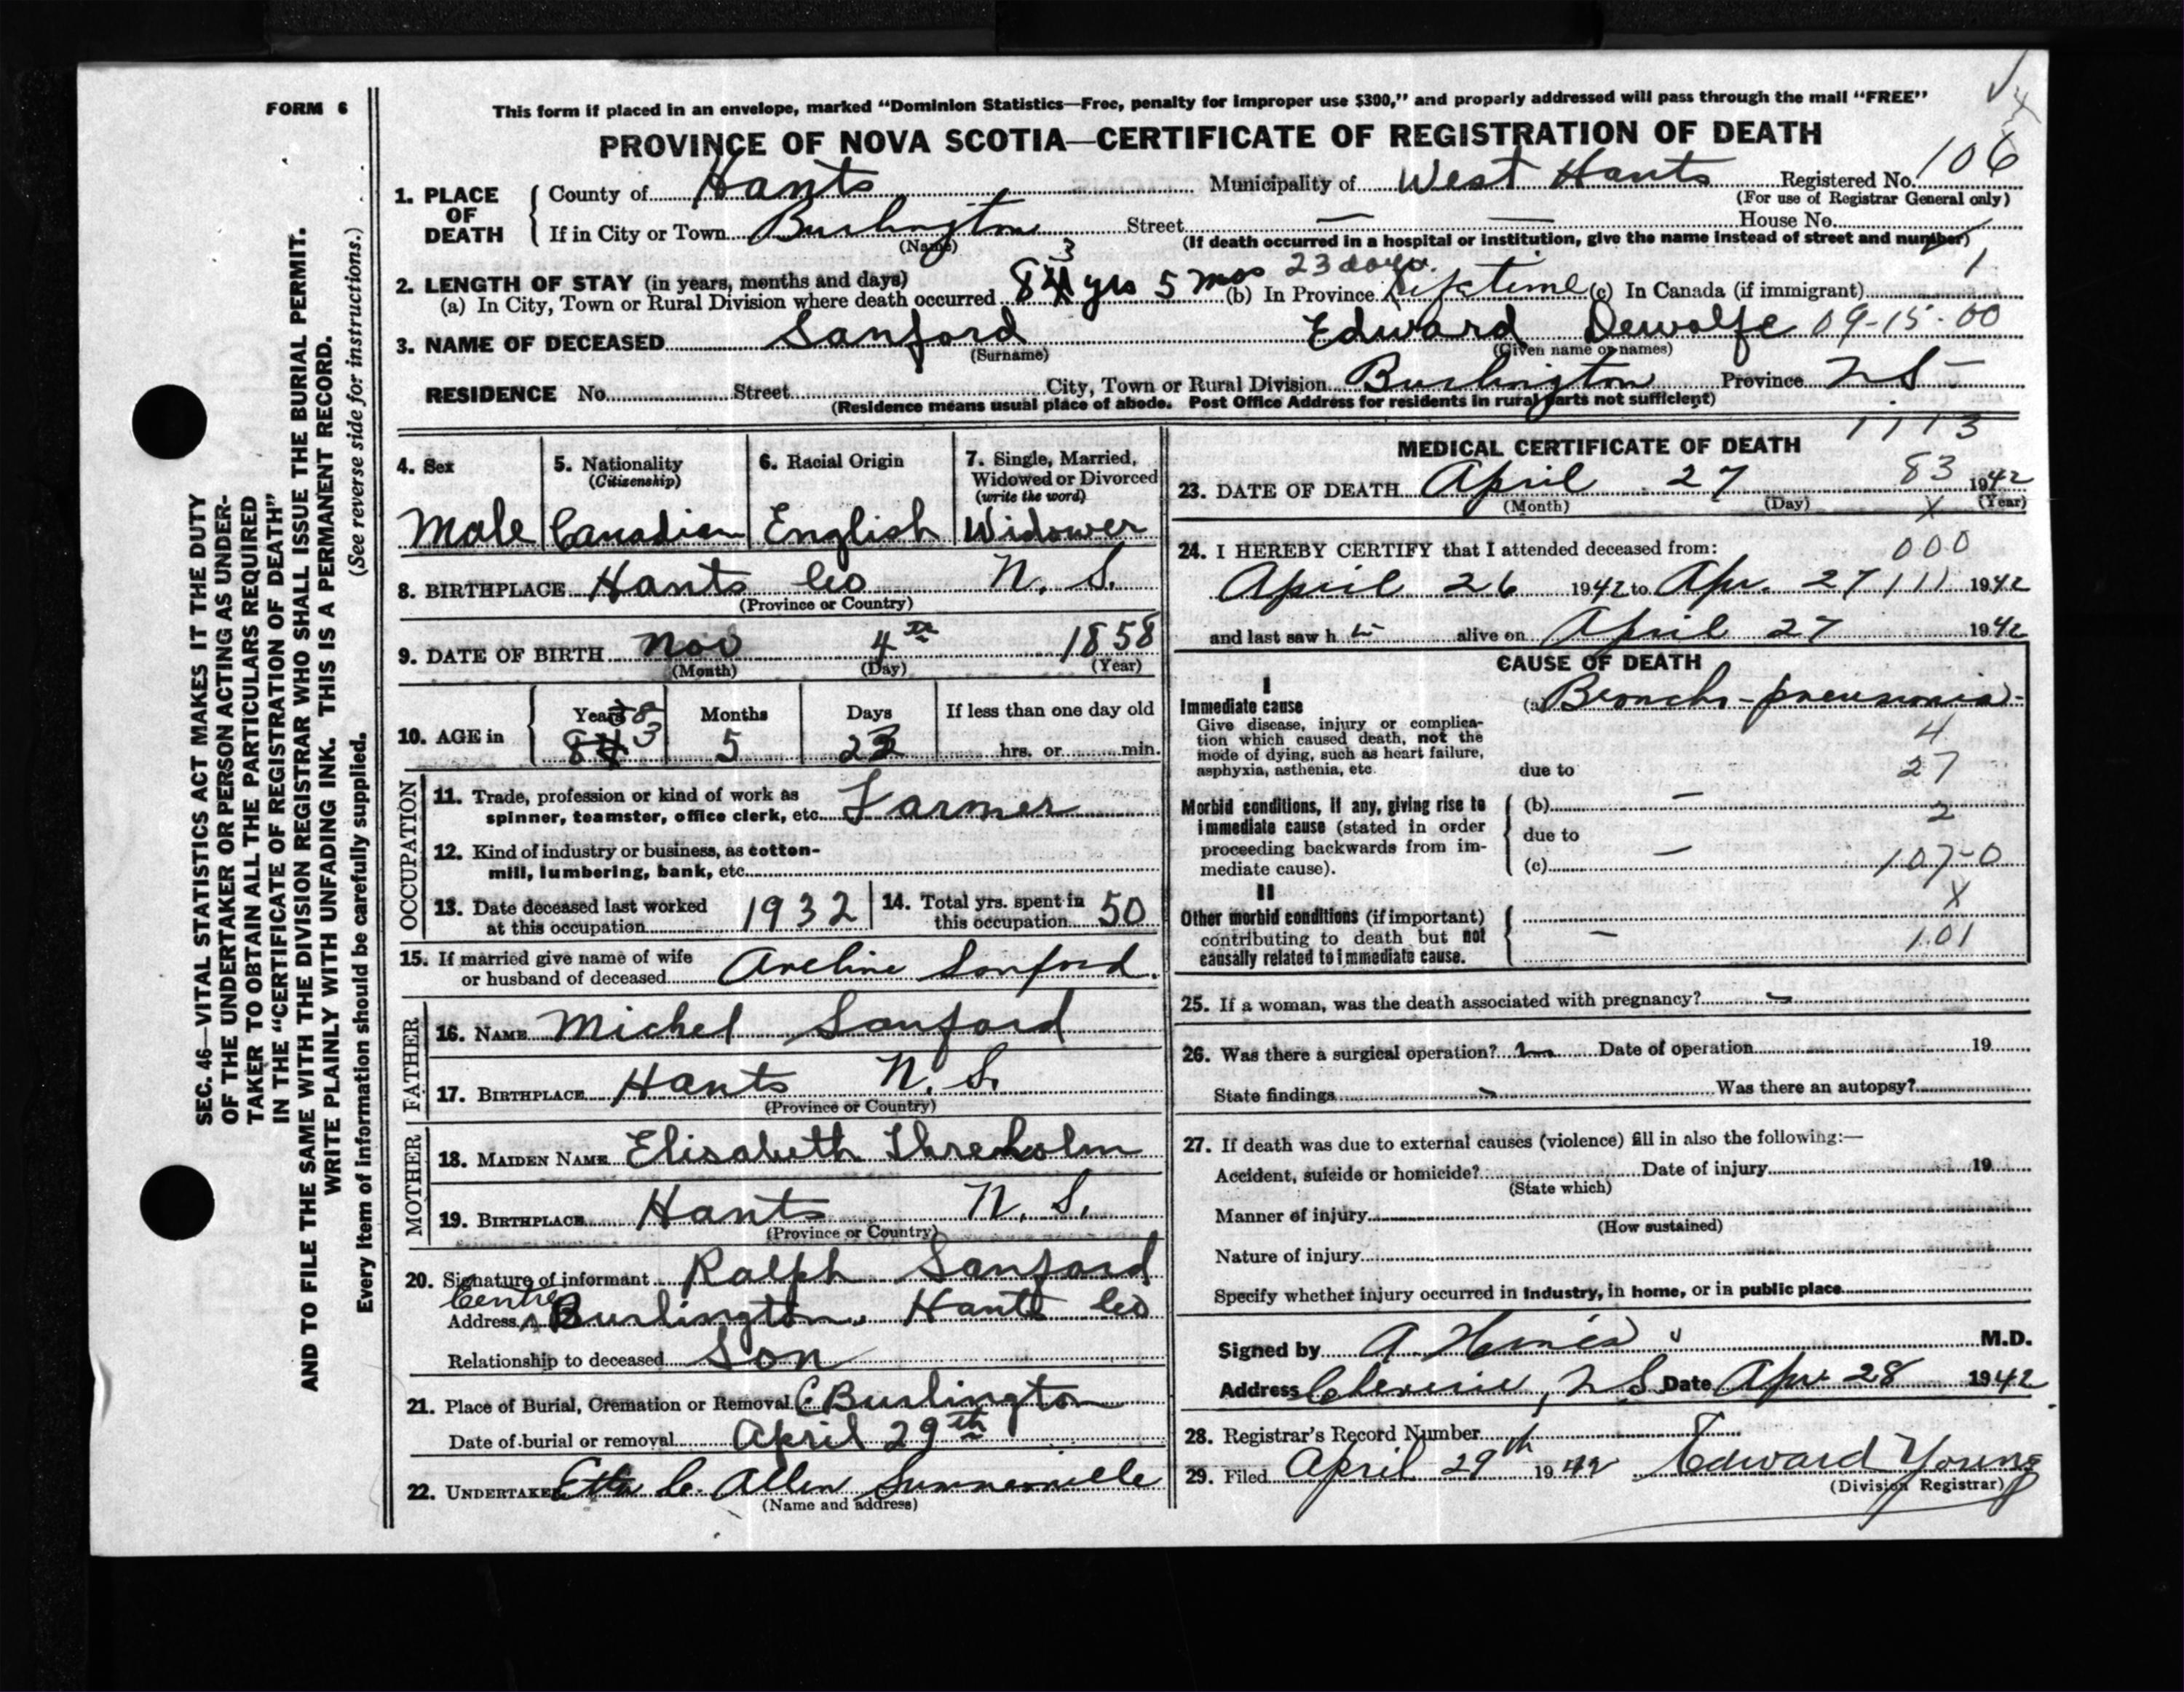 FORM 6
This form if placed in an envelope, marked “Dominion Statistics—Free, penalty for improper use $300,” and properly addressed will pass through the mail “FREE”
PROVINCE OF NOVA SCOTIA—CERTIFICATE OF REGISTRATION OF DEATH
SEC. 46—VITAL STATISTICS ACT MAKES IT THE DUTY
OF THE UNDERTAKER OR PERSON ACTING AS UNDER-
TAKER TO OBTAIN ALL THE PARTICULARS REQUIRED
IN THE “CERTIFICATE OF REGISTRATION OF DEATH”
AND TO FILE THE SAME WITH THE DIVISION REGISTRAR WHO SHALL ISSUE THE BURIAL PERMIT.
WRITE PLAINLY WITH UNFADING INK. THIS IS A PERMANENT RECORD.
Every item of information should be carefully supplied. (See reverse side for instructions.)
1. PLACE OF DEATH County of Hants Municipality of West Hants Registered No. 106
(For use of Registrar General only)
If in City or Town Burlington Street — — House No.
(Name) (If death occurred in a hospital or institution, give the name instead of street and number)
2. LENGTH OF STAY (in years, months and days)
(a) In City, Town or Rural Division where death occurred 83 yrs 5 mos 23 days. (b) In Province Lifetime (c) In Canada (if immigrant) 1
3. NAME OF DECEASED Sanford Edward Dewolfe 09-15-00
(Surname) (Given name or names)
RESIDENCE No. Street City, Town or Rural Division Burlington Province N S
(Residence means usual place of abode. Post Office Address for residents in rural parts not sufficient)
4. Sex 5. Nationality (Citizenship) 6. Racial Origin 7. Single, Married, Widowed or Divorced (write the word)
Male Canadian English Widower
8. BIRTHPLACE Hants Co N. S.
(Province or Country)
9. DATE OF BIRTH Nov 4th 1858
(Month) (Day) (Year)
10. AGE in Years 83 Months 5 Days 23 If less than one day old
hrs. or min.
OCCUPATION
11. Trade, profession or kind of work as
spinner, teamster, office clerk, etc. Farmer
12. Kind of industry or business, as cotton-
mill, lumbering, bank, etc.
13. Date deceased last worked at this occupation 1932 14. Total yrs. spent in this occupation 50
15. If married give name of wife
or husband of deceased Aveline Sanford.
FATHER
16. NAME Michel Sanford
17. BIRTHPLACE Hants N. S.
(Province or Country)
MOTHER
18. MAIDEN NAME Elisabeth
19. BIRTHPLACE Hants N. S.
(Province or Country)
20. Signature of informant Ralph Sanford
Address Centre Burlington. Hants Co
Relationship to deceased Son
21. Place of Burial, Cremation or Removal C. Burlington
Date of burial or removal April 29th
22. UNDERTAKER Etta C. Allen Summerville
(Name and address)
1113
MEDICAL CERTIFICATE OF DEATH
83
23. DATE OF DEATH April 27 1942
(Month) (Day) (Year)
X
24. I HEREBY CERTIFY that I attended deceased from: 000
April 26 1942 to Apr. 27 111 1942
and last saw h alive on April 27 1942
CAUSE OF DEATH
I
Immediate cause (a) Broncho-pneumonia
Give disease, injury or complica-
tion which caused death, not the 4
mode of dying, such as heart failure,
asphyxia, asthenia, etc. due to 27
Morbid conditions, if any, giving rise to (b) —
immediate cause (stated in order 2
proceeding backwards from im- due to
mediate cause). (c) — 107-0
II
X
Other morbid conditions (if important)
contributing to death but not — 101
causally related to immediate cause.
25. If a woman, was the death associated with pregnancy?
26. Was there a surgical operation? Date of operation 19
State findings Was there an autopsy?
27. If death was due to external causes (violence) fill in also the following:—
Accident, suicide or homicide? Date of injury 19
(State which)
Manner of injury
(How sustained)
Nature of injury
Specify whether injury occurred in Industry, in home, or in public place
Signed by A M.D.
Address N S Date Apr 28 1942
28. Registrar's Record Number
29. Filed April 29th 1942 Edward Young
(Division Registrar)